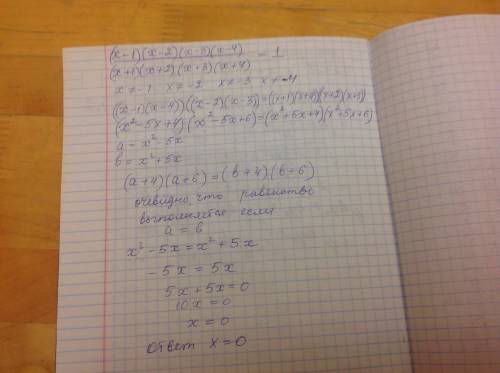 (x-1)(x-2)(x-3)(x-4)
(x+1)(x+2)(x+3)(x+4) = 1
x ≠ -1 x ≠ -2 x ≠ -3 x ≠ -4
((x-1)(x-4))((x-2)(x-3))=((x+1)(x+4))((x+2)(x+3))
(x²-5x+4)(x²-5x+6)=(x²+5x+4)(x²+5x+6)
a = x²-5x
b = x²+5x
(a+4)(a+6)=(b+4)(b+6)
очевидно, что равенство
выполняется если
a = b
x²-5x=x²+5x
-5x = 5x
5x+5x=0
10x=0
x=0
ответ x=0